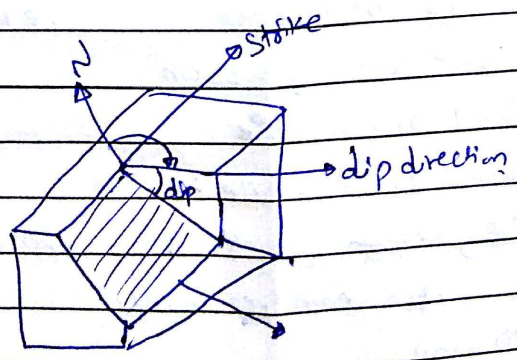 Strike
N
dip direction
dip